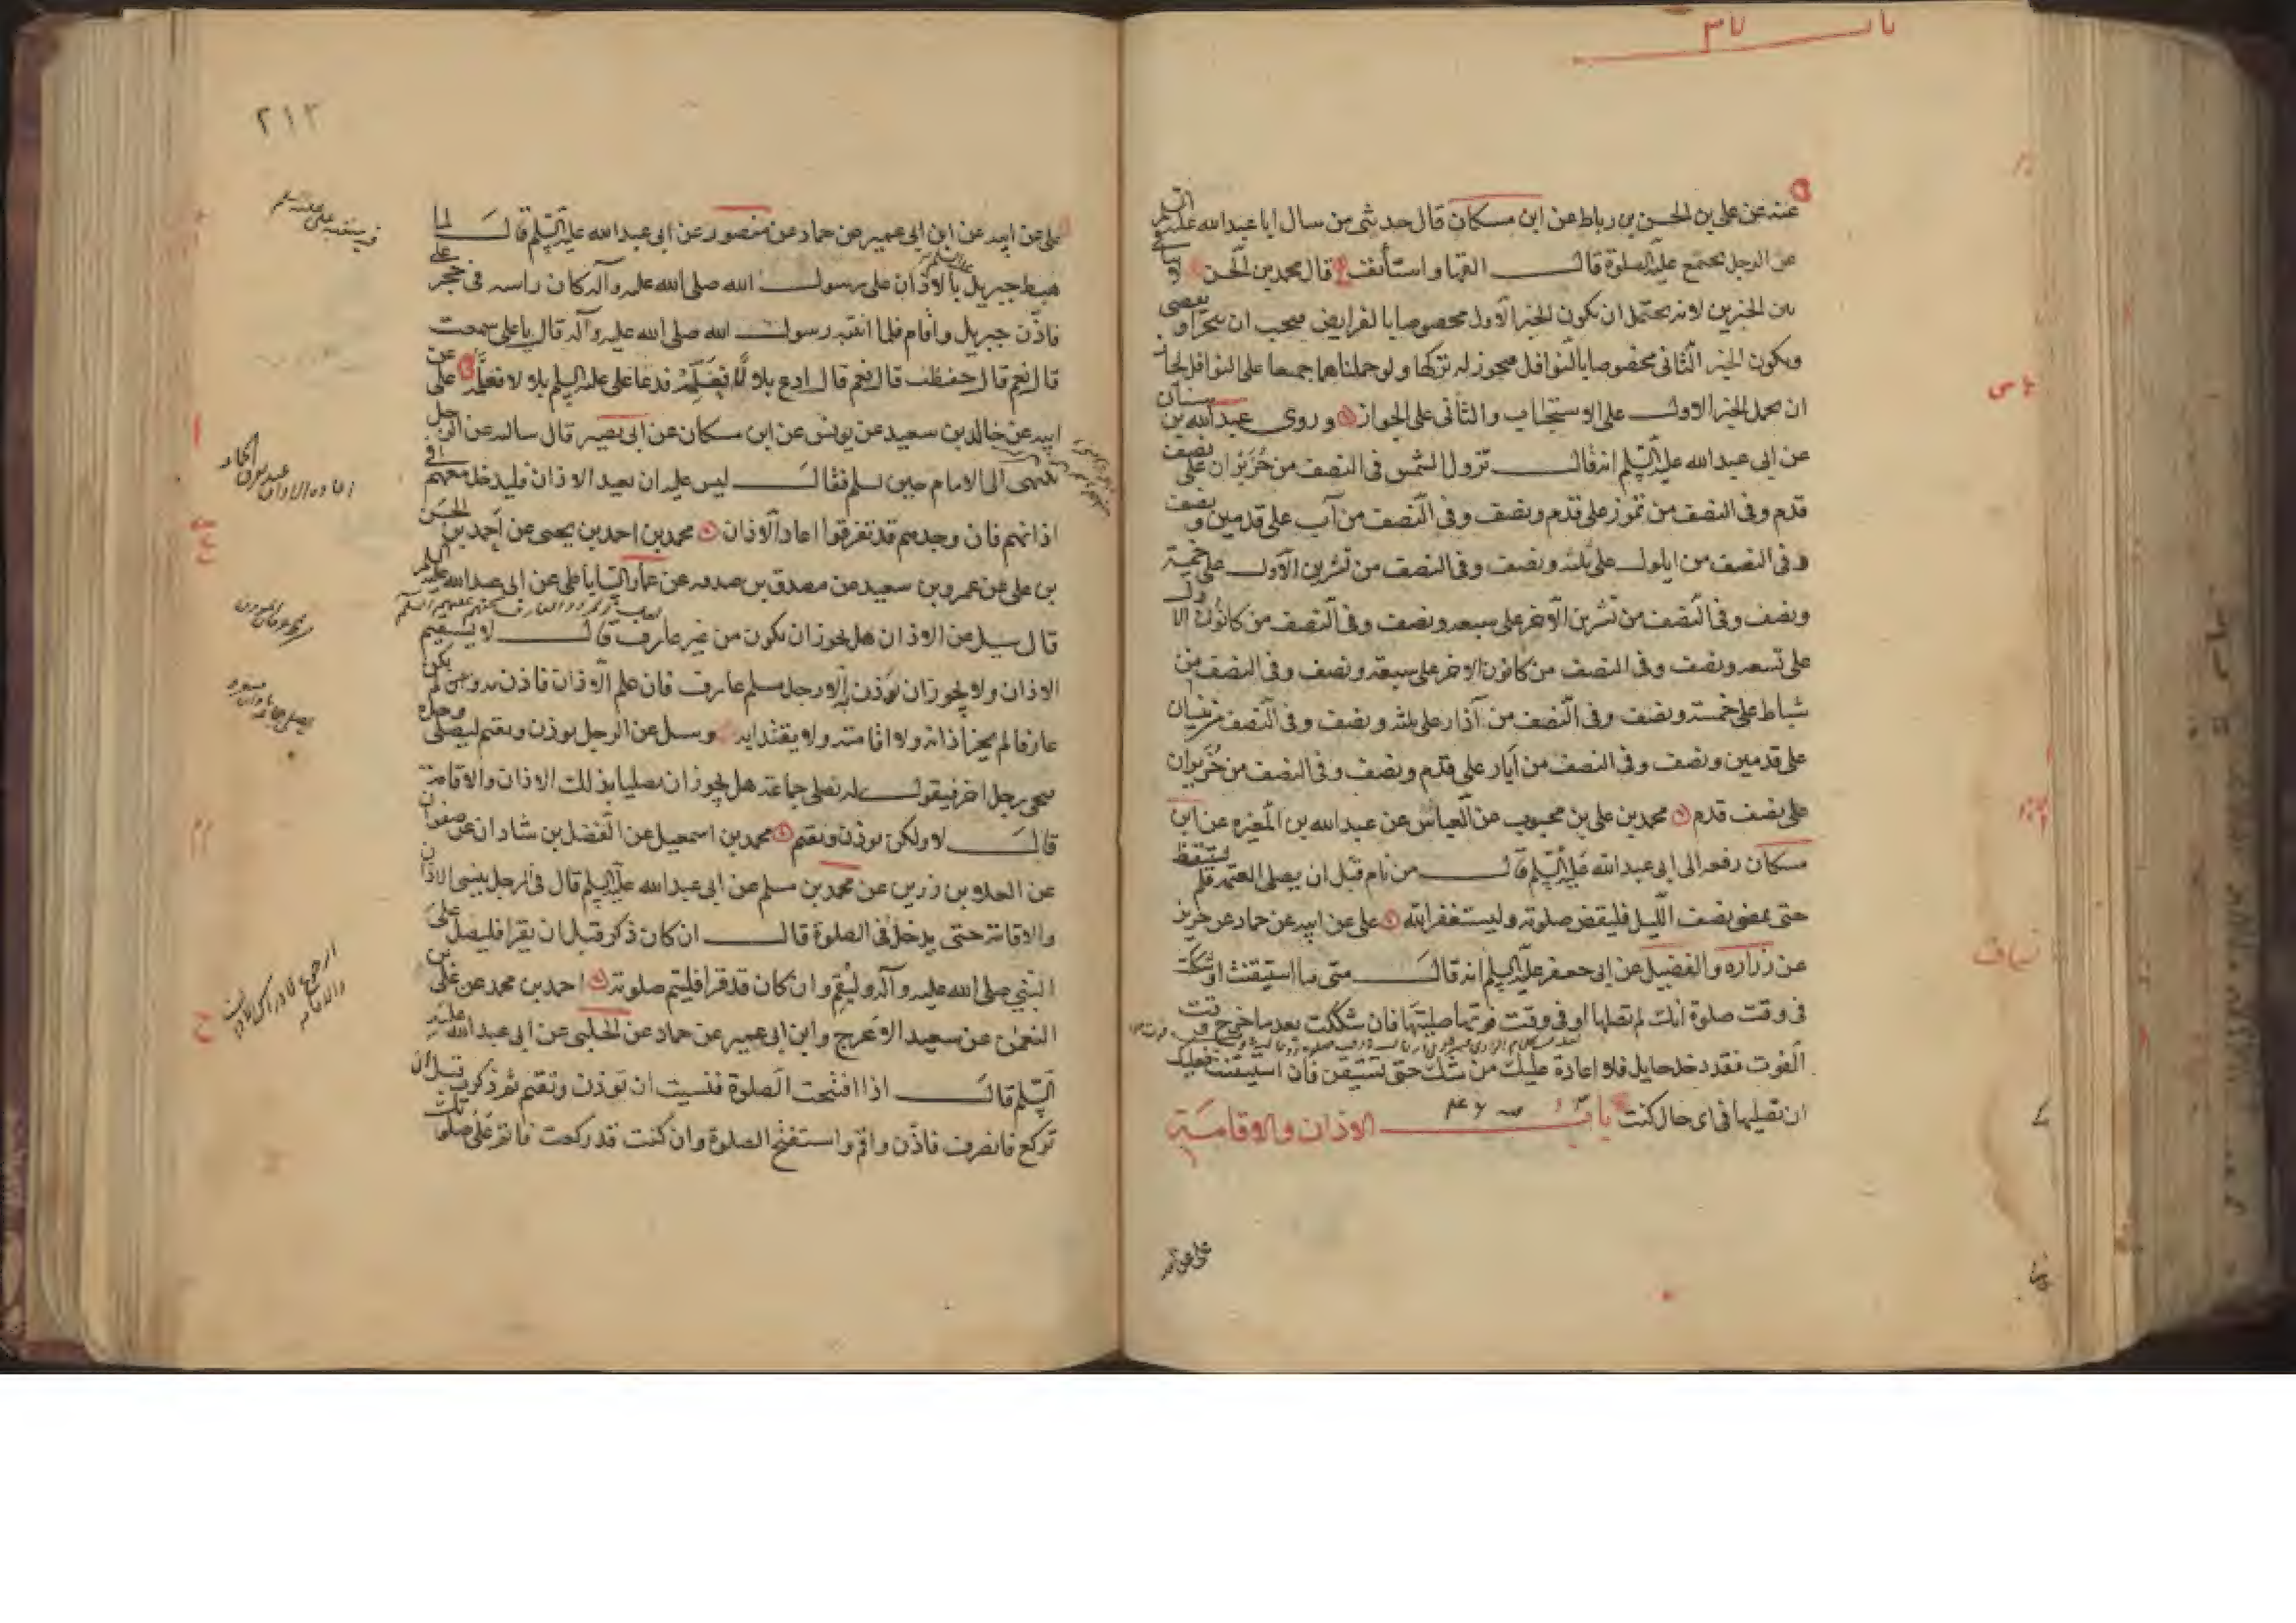 عنه عن علي بن الحسن بن رباط عن ابن مسكان قال حدثني من سال ابا عبدالله عليه السلم
عن الرجل يجتمع عليه الصلوة قال القها واستأنف قال محمد بن الحسن
بين الخبرين لانه يحتمل ان يكون الخبر الاول مخصوصا بالفرايض فيجب ان
ويكون الخبر الثاني مخصوصا بالنوافل فيجوز له تركها ولو حملناهما جميعا على النوافل لجاز
ان يحمل الخبر الاول على الاستحباب والثاني على الجواز وروى عبدالله بن سنان
عن ابي عبدالله عليه السلم انه قال تزول الشمس في النصف من حزيران على نصف
قدم وفي النصف من تموز على قدم ونصف وفي النصف من آب على قدمين ونصف
وفي النصف من ايلول على ثلثه ونصف وفي النصف من تشرين الاول على خمسة
ونصف وفي النصف من تشرين الآخر على سبعه ونصف وفي النصف من كانون الاول
على تسعه ونصف وفي النصف من كانون الاخر على سبعه ونصف وفي النصف من
شباط على خمسه ونصف وفي النصف من آذار على ثلثه ونصف وفي النصف من نيسان
على قدمين ونصف وفي النصف من أيار على قدم ونصف وفي النصف من حزيران
على نصف قدم محمد بن علي بن محبوب عن العباس عن عبدالله بن المغيره عن ابن
مسكان رفعه الى ابي عبدالله عليه السلم قال من نام قبل ان يصلي العتمه فلم يستيقظ
حتى يمضي نصف الليل فليقض صلوته وليستغفر الله علي عن ابيه عن حماد عن حريز
عن زراره والفضيل عن ابي جعفر عليه السلم انه قال متى ما استيقنت او شككت
في وقت صلوة انك لم تصلها او في وقت فوتها صليتها فان شككت بعد ما خرج وقت
الفوت فقد دخل حايل فلا اعادة عليك من شك حتى تستيقن فان استيقنت فعليك
ان تصليها في اي حال كنت باب الاذان والاقامة
علي عن ابيه
باب ٣٧
٢١٣
علي عن ابيه عن ابن ابي عمير عن حماد عن منصور عن ابي عبدالله عليه السلم قال لما
هبط جبريل بالاذان على رسول الله صلى الله عليه وآله كان راسه في حجر علي
فاذن جبريل واقام فلما انتبه رسول الله صلى الله عليه وآله قال يا علي سمعت
قال نعم قال حفظت قال نعم قال ادع بلالا فعلمه فدعا علي عليه السلم بلالا فعلمه علي عن
ابيه عن خالد بن سعيد عن يونس عن ابن مسكان عن ابي بصير قال سالته عن الرجل
ينتهى الى الامام حين يسلم فقال ليس عليه ان يعيد الاذان فليدخل معهم في
اذانهم فان وجدهم قد تفرقوا اعاد الاذان محمد بن احمد بن يحيى عن احمد بن الحسن
بن علي عن عمرو بن سعيد عن مصدق بن صدقه عن عمار الساباطي عن ابي عبدالله عليه السلم
قال سيل عن الاذان هل يجوز ان يكون من غير عارف قال لا يستقيم
الاذان ولا يجوز ان يؤذن به الا رجل مسلم عارف فان علم الاذان فاذن به ولم يكن
عارفا لم يجز اذانه ولا اقامته ولا يقتدا به وسل عن الرجل يوذن ويقيم ليصلي وحده
فيجي رجل اخر فيقول له نصلي جماعة هل يجوز ان يصليا بذلك الاذان والاقامة
قال لا ولكن يوذن ويقيم محمد بن اسمعيل عن الفضل بن شاذان عن صفوان
عن العلاء بن رزين عن محمد بن مسلم عن ابي عبدالله عليه السلم قال في الرجل ينسى الاذان
والاقامة حتى يدخل في الصلوة قال ان كان ذكر قبل ان يقرا فليصل على
النبي صلى الله عليه وآله وليقم وان كان قد قرا فليتم صلوته احمد بن محمد عن علي بن
النعمن عن سعيد الاعرج وابن ابي عمير عن حماد عن الحلبي عن ابي عبدالله عليه
السلم قال اذا افتتحت الصلوة فنسيت ان توذن وتقيم ثم ذكرت قبل ان
تركع فانصرف فاذن واقم واستفتح الصلوة وان كنت قد ركعت فاتم على صلوتك